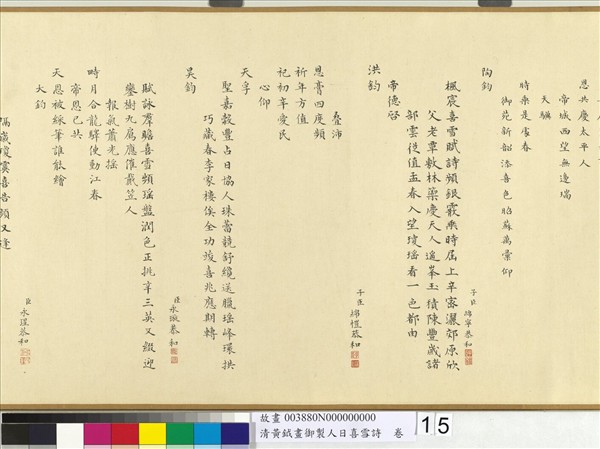 恩共慶太平人
帝城西望無邊瑞
天驥
時乘是處春
御苑新韶添喜色胎蘇萬彙仰
陶鈞
子臣綿寧恭和
楓宸喜雪賦詩頻銀霰乘時屆上辛密灑郊原欣
父老覃敷林藪慶天人遙峯玉積陳豐歲諸
部雲從值孟春入望瓊瑤看一色都由
帝德啓
洪鈞
子臣綿愷恭和
疊沛
恩膏四度頻
祈年方值
祀初辛愛民
心仰
天孚
聖嘉穀豐占日協人珠蕾競舒纔送臘瑤峰環拱
巧藏春李家樓俟全功竣喜兆應期轉
昊鈞
臣永璇恭和
賦詠群瞻喜雪頻瑤盤潤色正挑辛三英又綴迎
鑾樹九扈應催戴笠人
報氣蕭光搖
時月合龍驛使動江春
帝恩已共
天恩被綵筆誰能繪
大鈞
臣永瑆恭和
隔歲瓊霙喜告頻又逢
故畫 003880N000000000
清黃鉞畫御製人日喜雪詩 卷
15